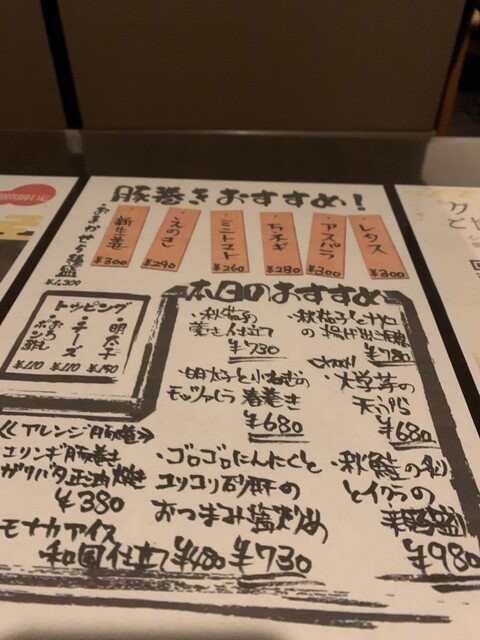 豚巻きおすすめ!
レタス
¥300
アスパラ
¥300
万ネギ
¥280
ミニトマト
¥260
えのき
¥240
新生姜
¥300
・おまかせ5種盛
¥1,300
本日のおすすめ
トッピング
・明太子
¥150
・チーズ
¥110
・おろしポン酢
¥110
の揚げ出し
¥780
・秋茄子の
仕立て
¥730
・大学芋の
天ぷら
¥680
・明太子と小ねぎの
モッツァレラ春巻き
¥680
・秋鮭の
とイクラの
¥980
・ゴロゴロにんにくと
コリコリ砂肝の
おつまみ塩炒め
¥730
≪アレンジ豚巻≫
エリンギ豚巻き
ガリバタ正油焼
¥380
モナカアイス
和風仕立て ¥480